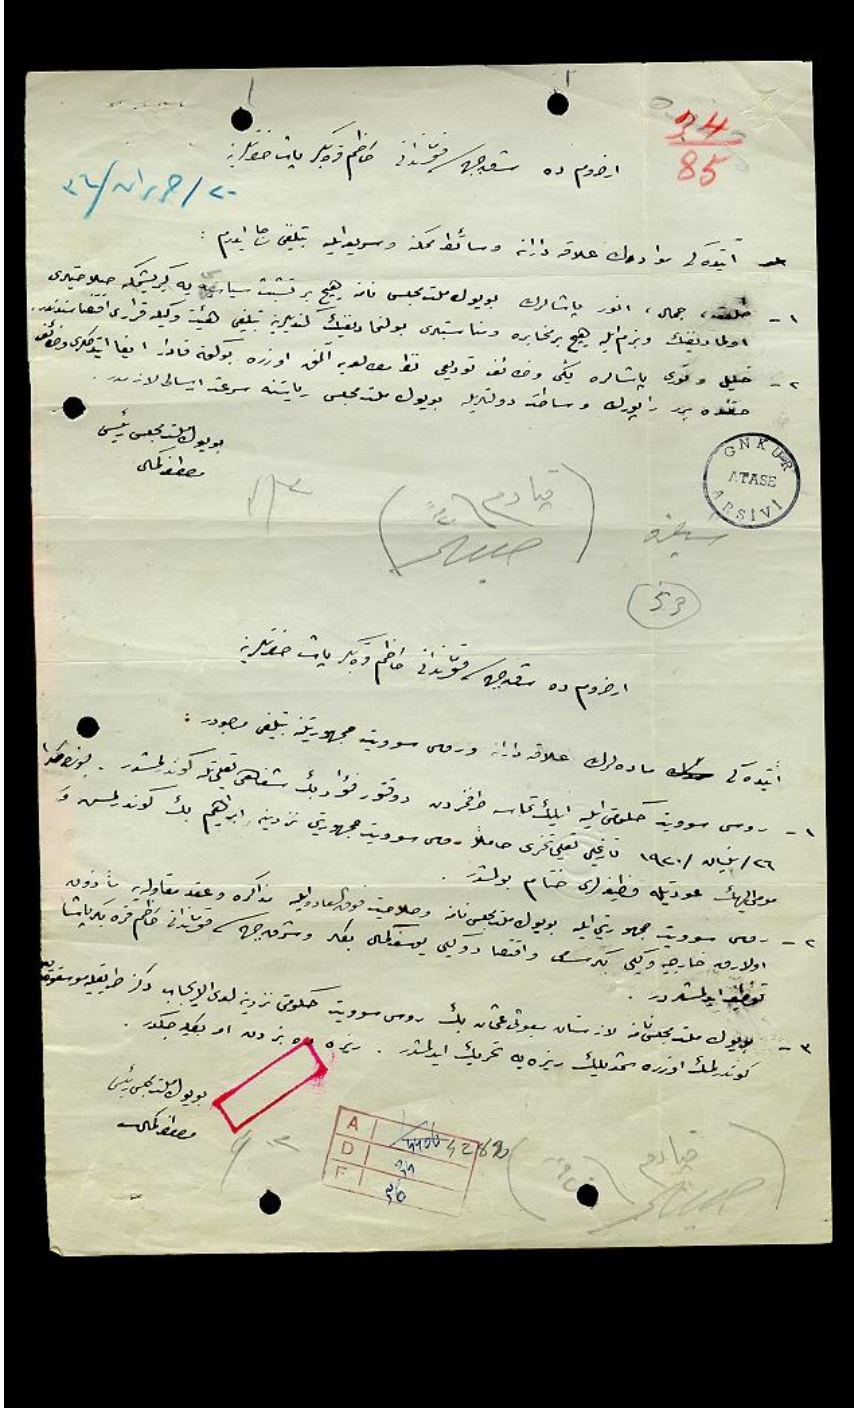 34
85
ارضرومده شرق جبهه‌سى قوماندانى كاظم قره‌بكر پاشا حضرتلرينه
٢٠/حزيران/٣٦
آتيده‌كى موادك علاقه‌دارانه وسائط ممكنه وسريعه ايله تبليغى رجا ايدرم :
١ - جمال، انور پاشالرك بويوك ملت مجلسى نامنه هيچ بر تشبث سياسيه‌يه كيريشمكه صلاحيتلرى
اولماديغنك وبزم ايله هيچ بر مخابره ومناسبتلرى بولنماديغنك كنديلرينه تبليغى هيئت وكيله قرارى اقتضاسندندر.
٢ - خليل ونورى پاشالره يكى وظائف توديعى اوزره بوكونه قدر ايفا ايتدكلرى وظائف
حقنده برر راپورك وساطت دولتلريله بويوك ملت مجلسى رياستنه سرعت ايصالى لازمدر.
بويوك ملت مجلسى رئيسى
مصطفى كمال
GNKUR
ATASE
ARŞİVİ
شيفره
53
ارضرومده شرق جبهه‌سى قوماندانى كاظم قره‌بكر پاشا حضرتلرينه
آتيده‌كى ماده‌لرك علاقه‌دارانه وروس سوويت جمهوريتنه تبليغى مرجودر :
١ - روس سوويت حكومتى ايله ايلك تماسه طرفمزدن دوقتور فؤاد بك شفاهى تعليماتله كوندرلمشدر.
٢٦/نيسان/١٩٢٠ تاريخلى تحريرى حاملاً روس سوويت جمهوريتى نزدينه ابراهيم بك كوندرلمش و
مومى اليهك عودتيله وظيفه‌لرى ختام بولمشدر.
٢ - روس سوويت جمهوريتى ايله بويوك ملت مجلسى نامنه وصلاحيت فوق العاده ايله مذاكره وعقد مقاوله‌يه مأذون
اولارق خارجيه وكيلى بكر سامى واقتصاد وكيلى يوسف كمال بكلر وشرق جبهه‌سى قوماندانى كاظم قره‌بكر پاشا
توظيف ايدلمشدر.
٣ - بويوك ملت مجلسى نامنه لازستان مبعوثى عثمان بك روس سوويت حكومتى نزدينه لدى الايجاب دكز طريقيله
كوندرلمك اوزره شمديلك ريزه‌يه تحريك ايدلمشدر. ريزه‌ده بزدن امر بكليه‌جكدر.
بويوك ملت مجلسى رئيسى
مصطفى كمال
A
D
F